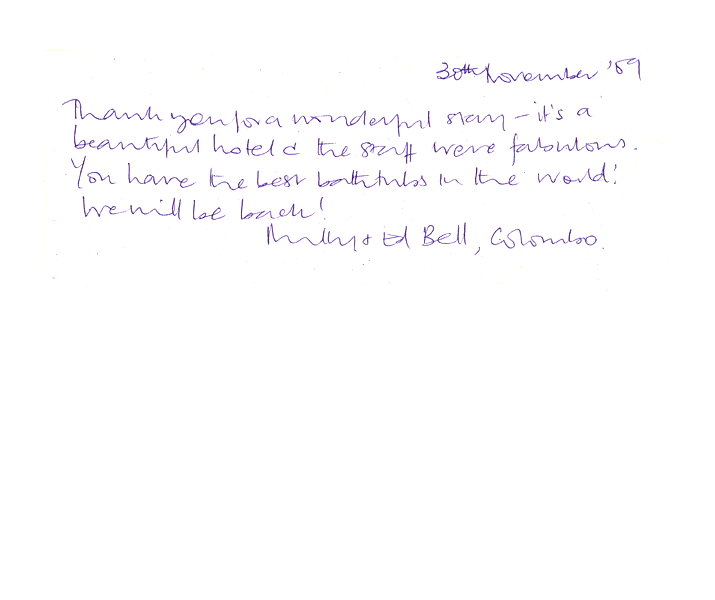 30th November '09
Thank you for a wonderful stay – it's a
beautiful hotel & the staff were fabulous.
You have the best bathtubs in the world!
We will be back!
& Ed Bell, Colombo.